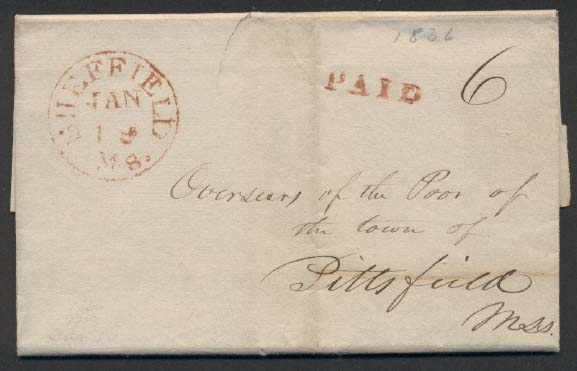 1836
SHEFFIELD
JAN
19
MS.
PAID
6
Overseers of the Poor of
the town of
Pittsfield
Mss.